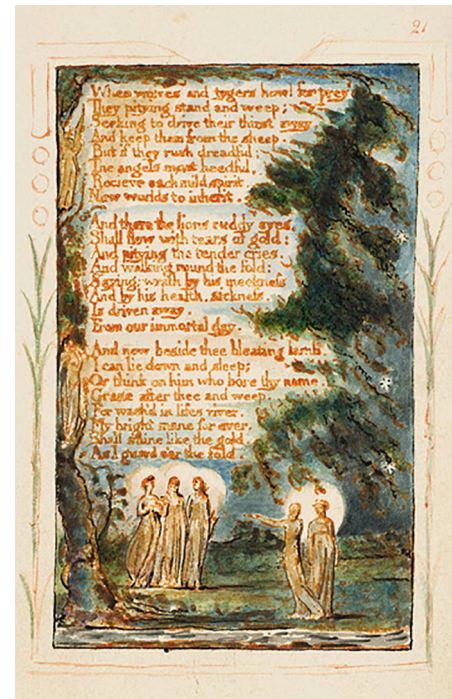 21
When wolves and tygers howl for prey
They pitying stand and weep;
Seeking to drive their thirst away,
And keep them from the sheep,
But if they rush dreadful;
The angels most heedful,
Recieve each mild spirit,
New worlds to inherit.
And there the lions ruddy eyes,
Shall flow with tears of gold:
And pitying the tender cries,
And walking round the fold:
Saying: wrath by his meekness
And by his health, sickness,
Is driven away,
From our immortal day.
And now beside thee bleating lamb,
I can lie down and sleep;
Or think on him who bore thy name,
Grase after thee and weep.
For wash'd in lifes river,
My bright mane for ever,
Shall shine like the gold,
As I guard o'er the fold.